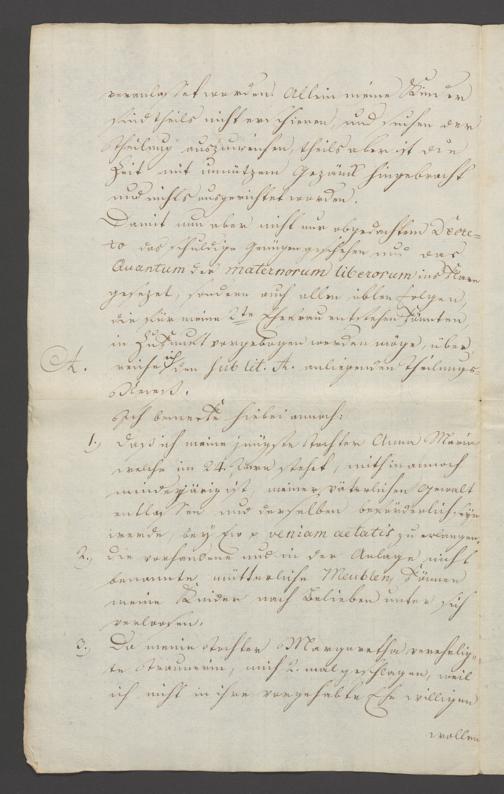 veranlasset worden. Allein meine Kinder
sind theils nicht erschienen, und suchen der
Theilung auszuweichen, theils aber ist die
Zeit mit unnützem Gezänk hingebracht
und nichts ausgerichtet worden.
Damit nun aber nicht nur obgedachtem Decre-
to das schuldige Genügen geschehen und das
Quantum der maternorum liberorum ins Klare
gesezet, sondern auch allen üblen Folgen,
die für meine 2te Ehefrau entstehen könnten,
in Zukunft vorgebogen werden möge, über
reiche ich den sub lit. A. anliegenden Theilungs-
A.
Ich bemerke hiebei annoch:
1.) Dass ich meine jüngste Tochter Anna Maria
welche im 24. Jare stehet, mithin annoch
minderjärig ist, meiner väterlichen Gewalt
entlassen und derselben erforderlich
werde, veniam aetatis zu erlangen,
2.) die vorhandene und in der Anlage nicht
benannte mütterliche Meublen, können
meine Kinder nach Belieben unter sich
verloosen.
3.) Da meine Tochter Margaretha verehelig-
te mich 2. mal geschlagen, weil
ich nicht in ihre vorgehabte Ehe willigen
wollen